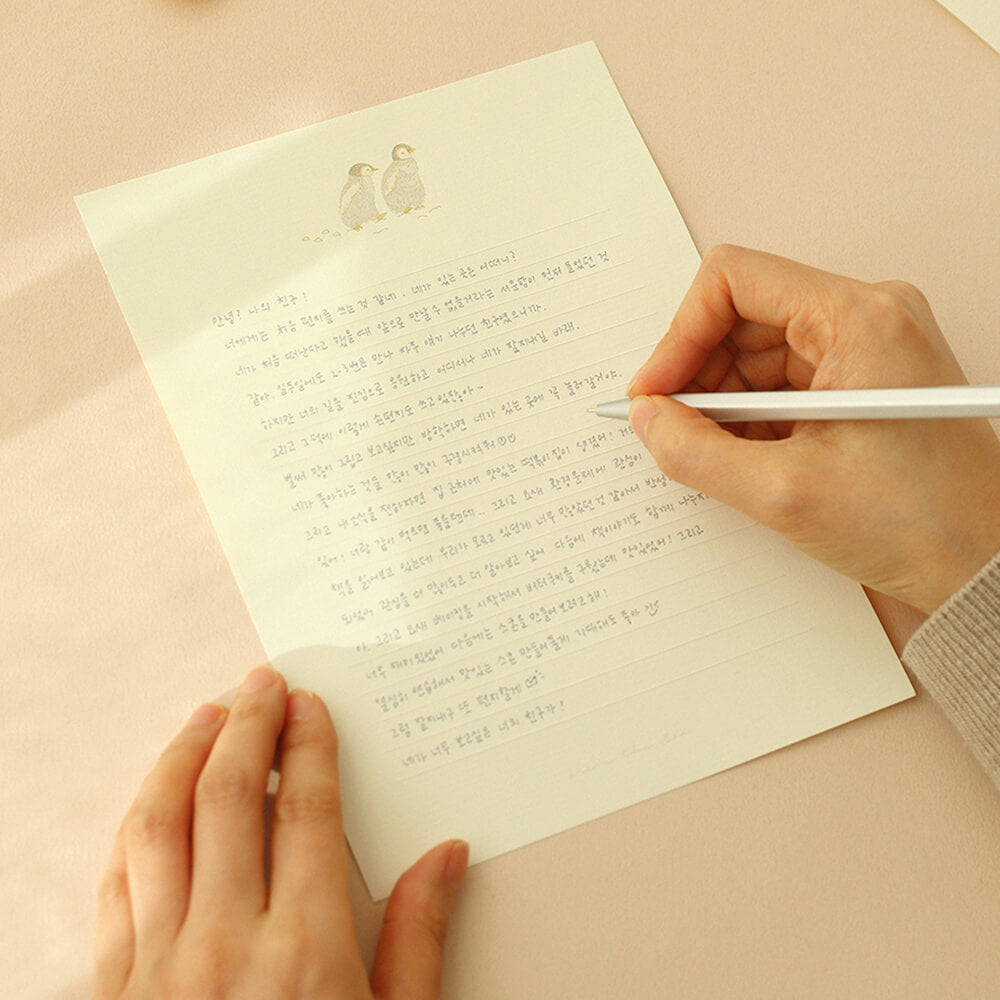 안녕? 나의 친구!
너에게는 처음 편지를 쓰는 것 같네. 네가 있는 곳은 어떠니?
네가 처음 떠난다고 했을 때 앞으로 만날 수 없을거라는 서운함이 먼저 들었던 것
같아. 일주일에도 2-3번은 만나 자주 얘기 나누던 친구였으니까.
하지만 너의 길을 진심으로 응원하고 어디서나 네가 잘지내길 바래.
그리고 그 덕에 이렇게 손편지도 쓰고있잖아~
벌써 많이 그립고 보고싶지만 방학하면 네가 있는 곳에 꼭 놀러갈거야.
네가 좋아하는 것을 많이 많이 구경시켜줘
그리고 내 소식을 전하자면 집 근처에 맛있는 떡볶이 집이 생겼어!
있어! 너랑 같이 먹으면 좋을텐데.. 그리고 요새 환경문제에 관심이
책을 읽어보고 있는데 우리가 모르고 있던게 너무 많았던것 같아서 반성
되었어 관심을 더 많이두고 더 알아보고 싶어 다음에 책이야기도 함께 나누자
아. 그리고 요새 베이킹을 시작해서 버터쿠키를 구웠는데 맛있었어! 그리고
너무 재미있었어 다음에는 스콘을 만들어 보려고해!
열심히 연습해서 맛있는 스콘 만들어줄게 기대해도 좋아
그럼 잘지내구 또 편지할게
네가 너무 보고싶은 너의 친구가!